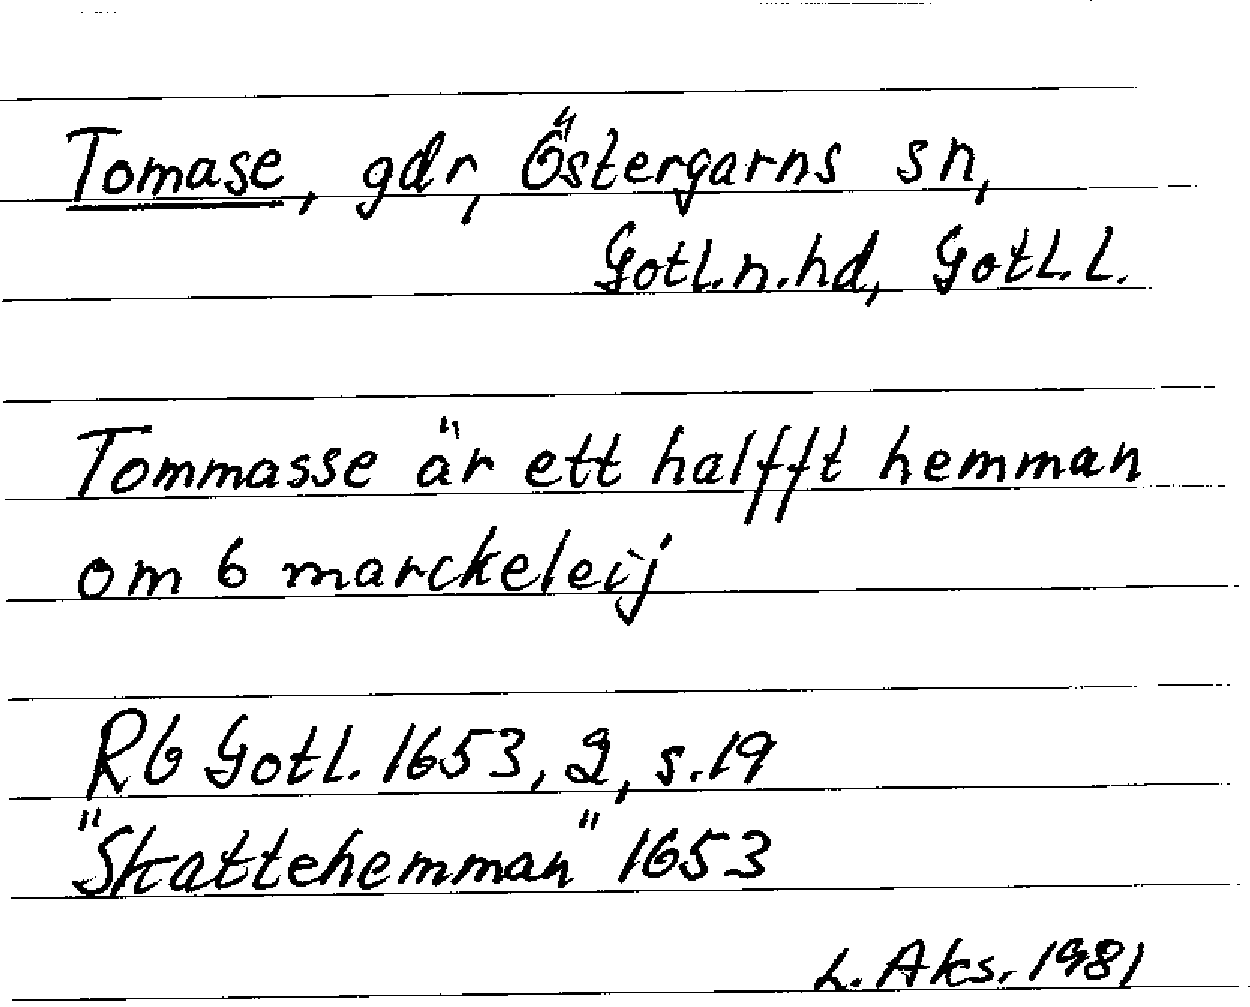 Tomase, gdr, Östergarns sn,
Gotl.n.hd, Gotl.l.
Tommasse är ett halfft hemman
om 6 marckeleij
Rb Gotl. 1653, 2, s.19
"Skattehemman" 1653
L. Aks. 1981